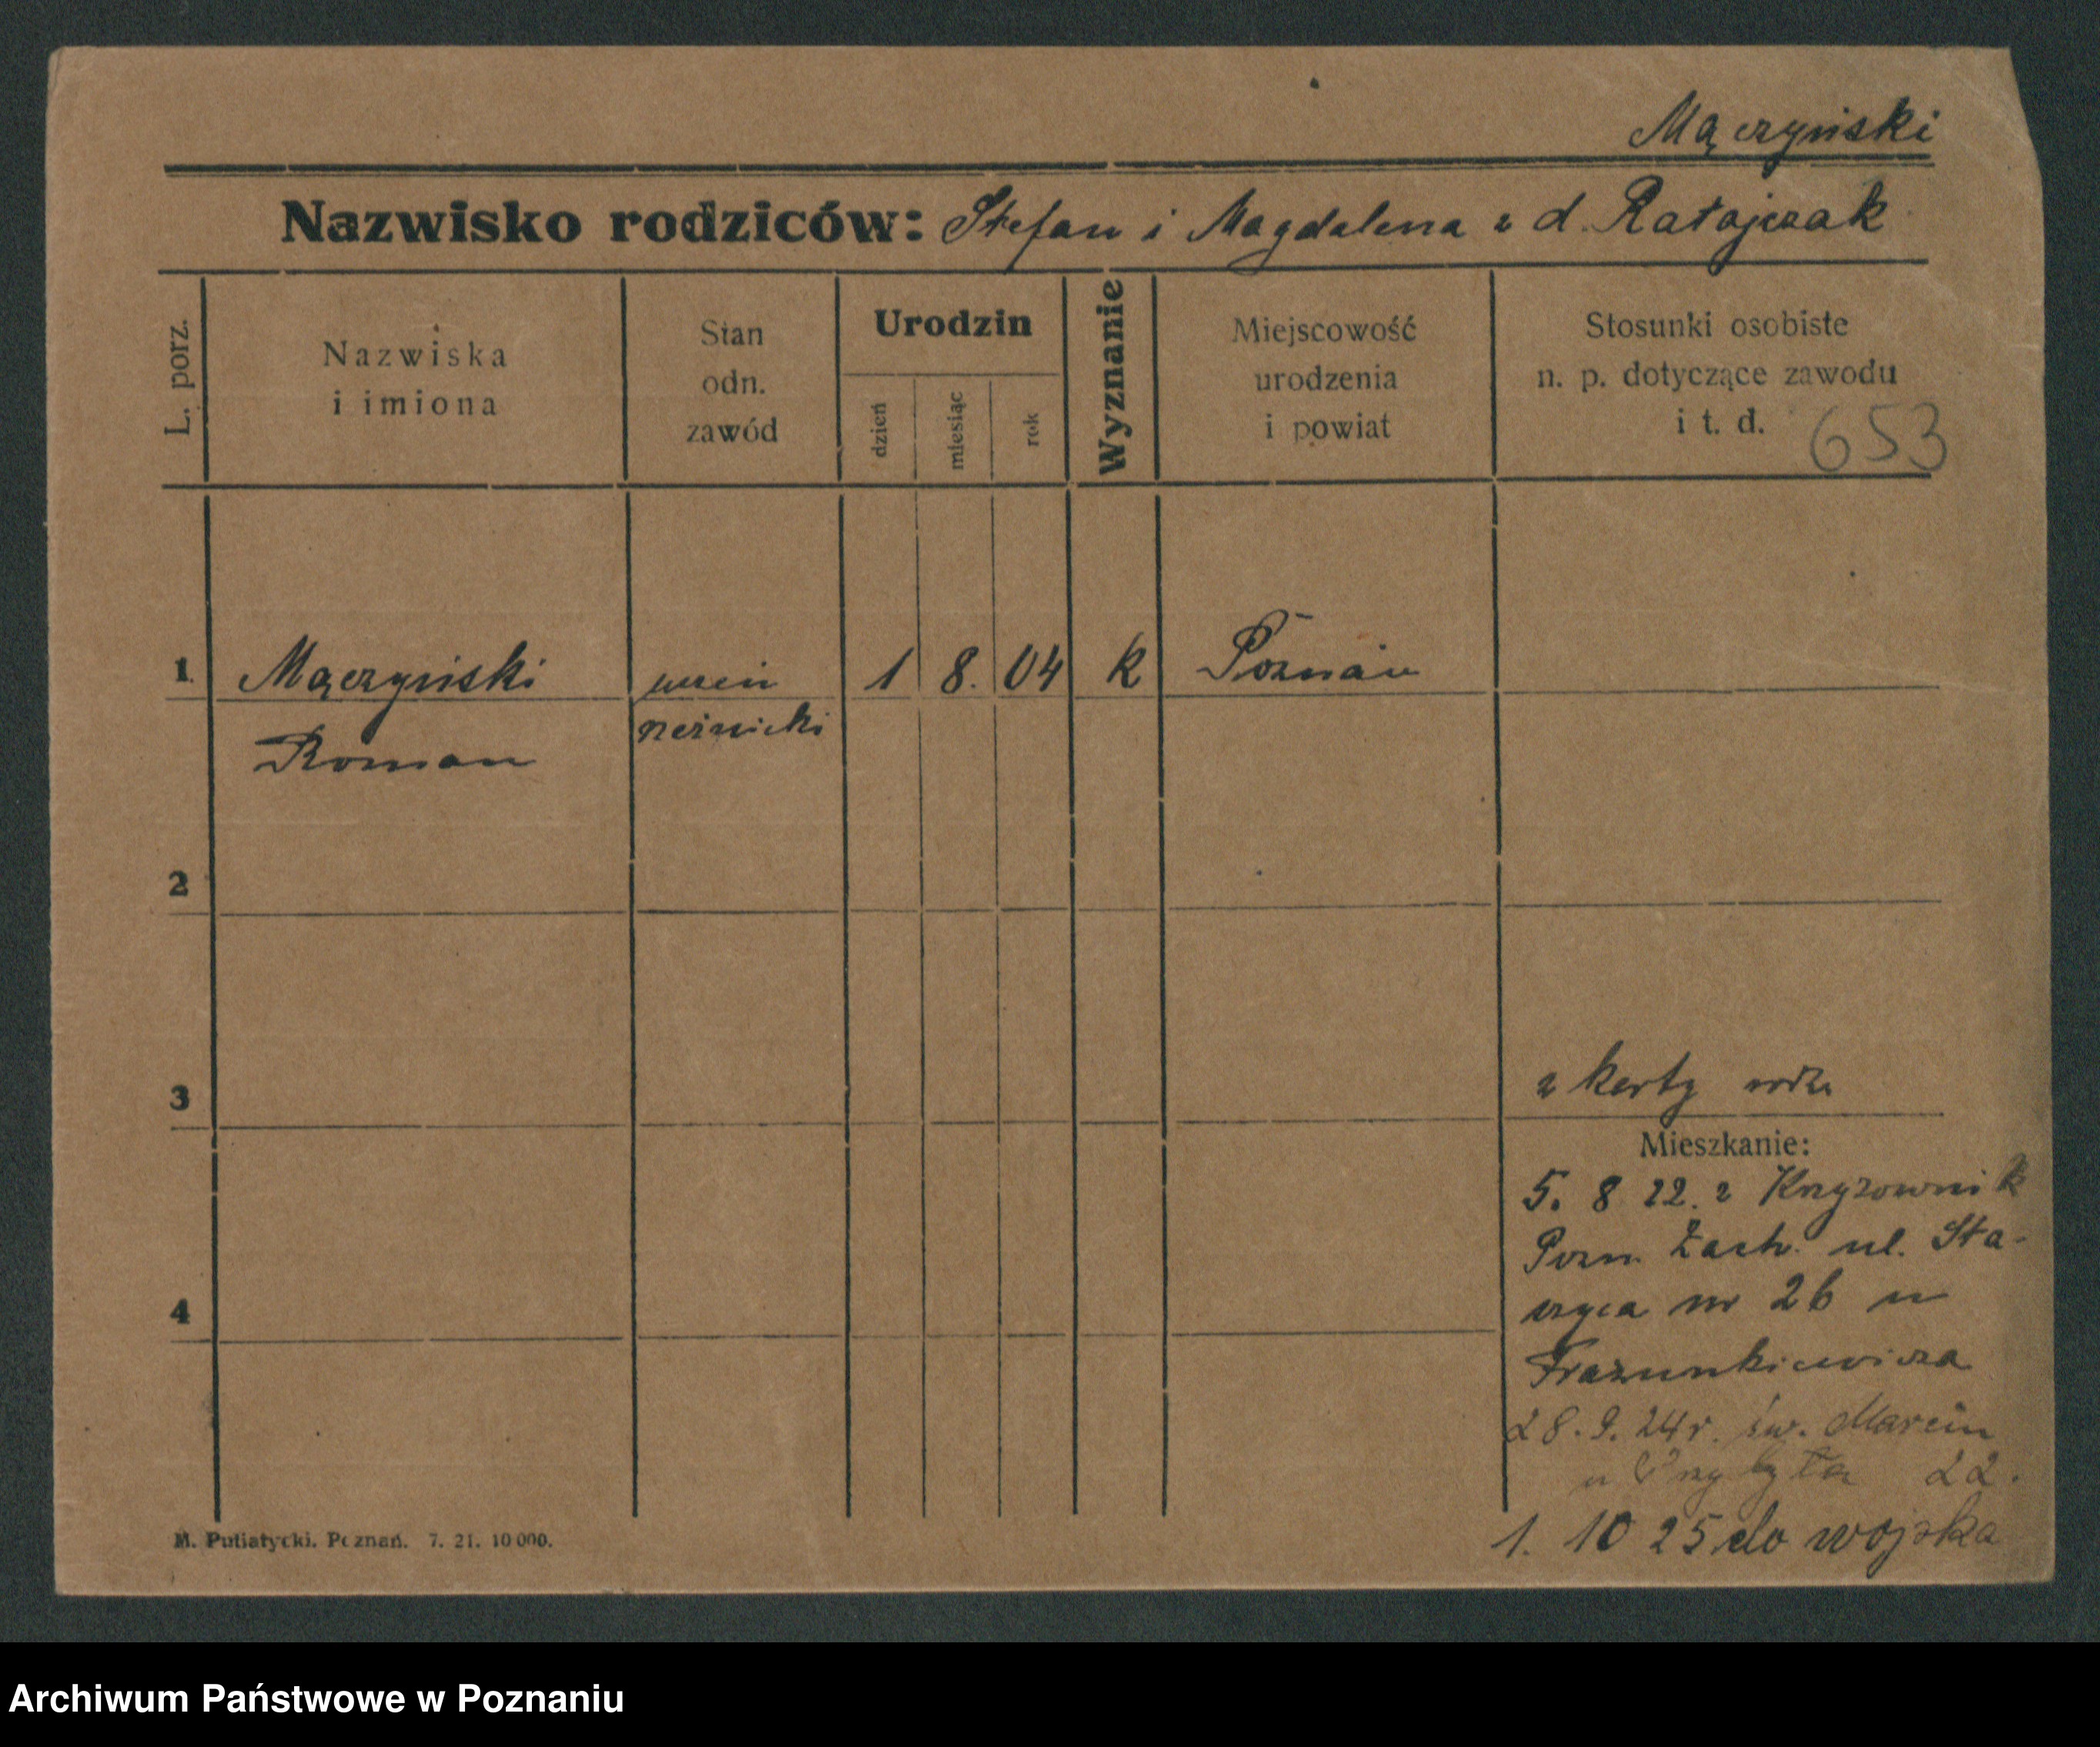 Mączyński
Nazwisko rodziców: Stefan i Magdalena z d. Ratajczak
L. porz.
Nazwiska
i imiona
Stan
odn.
zawód
Urodzin
dzień
miesiąc
rok
Wyznanie
Miejscowość
urodzenia
i powiat
Stosunki osobiste
n. p. dotyczące zawodu
i t. d.
653
1 Mączyński uczeń 1 8. 04 k Poznań
rzeźnicki
Roman
2
3
z karty rodz.
Mieszkanie:
5. 8 22. z Krzyżownik
Pozn. Zach. ul. Sta-
szyca nr 26 u
4
28. 9. 24 r. św. Marcin
u Przybyła 22.
1. 10 25 do wojska
M. Putiatycki. Poznań. 7. 21. 10 000.
Archiwum Państwowe w Poznaniu